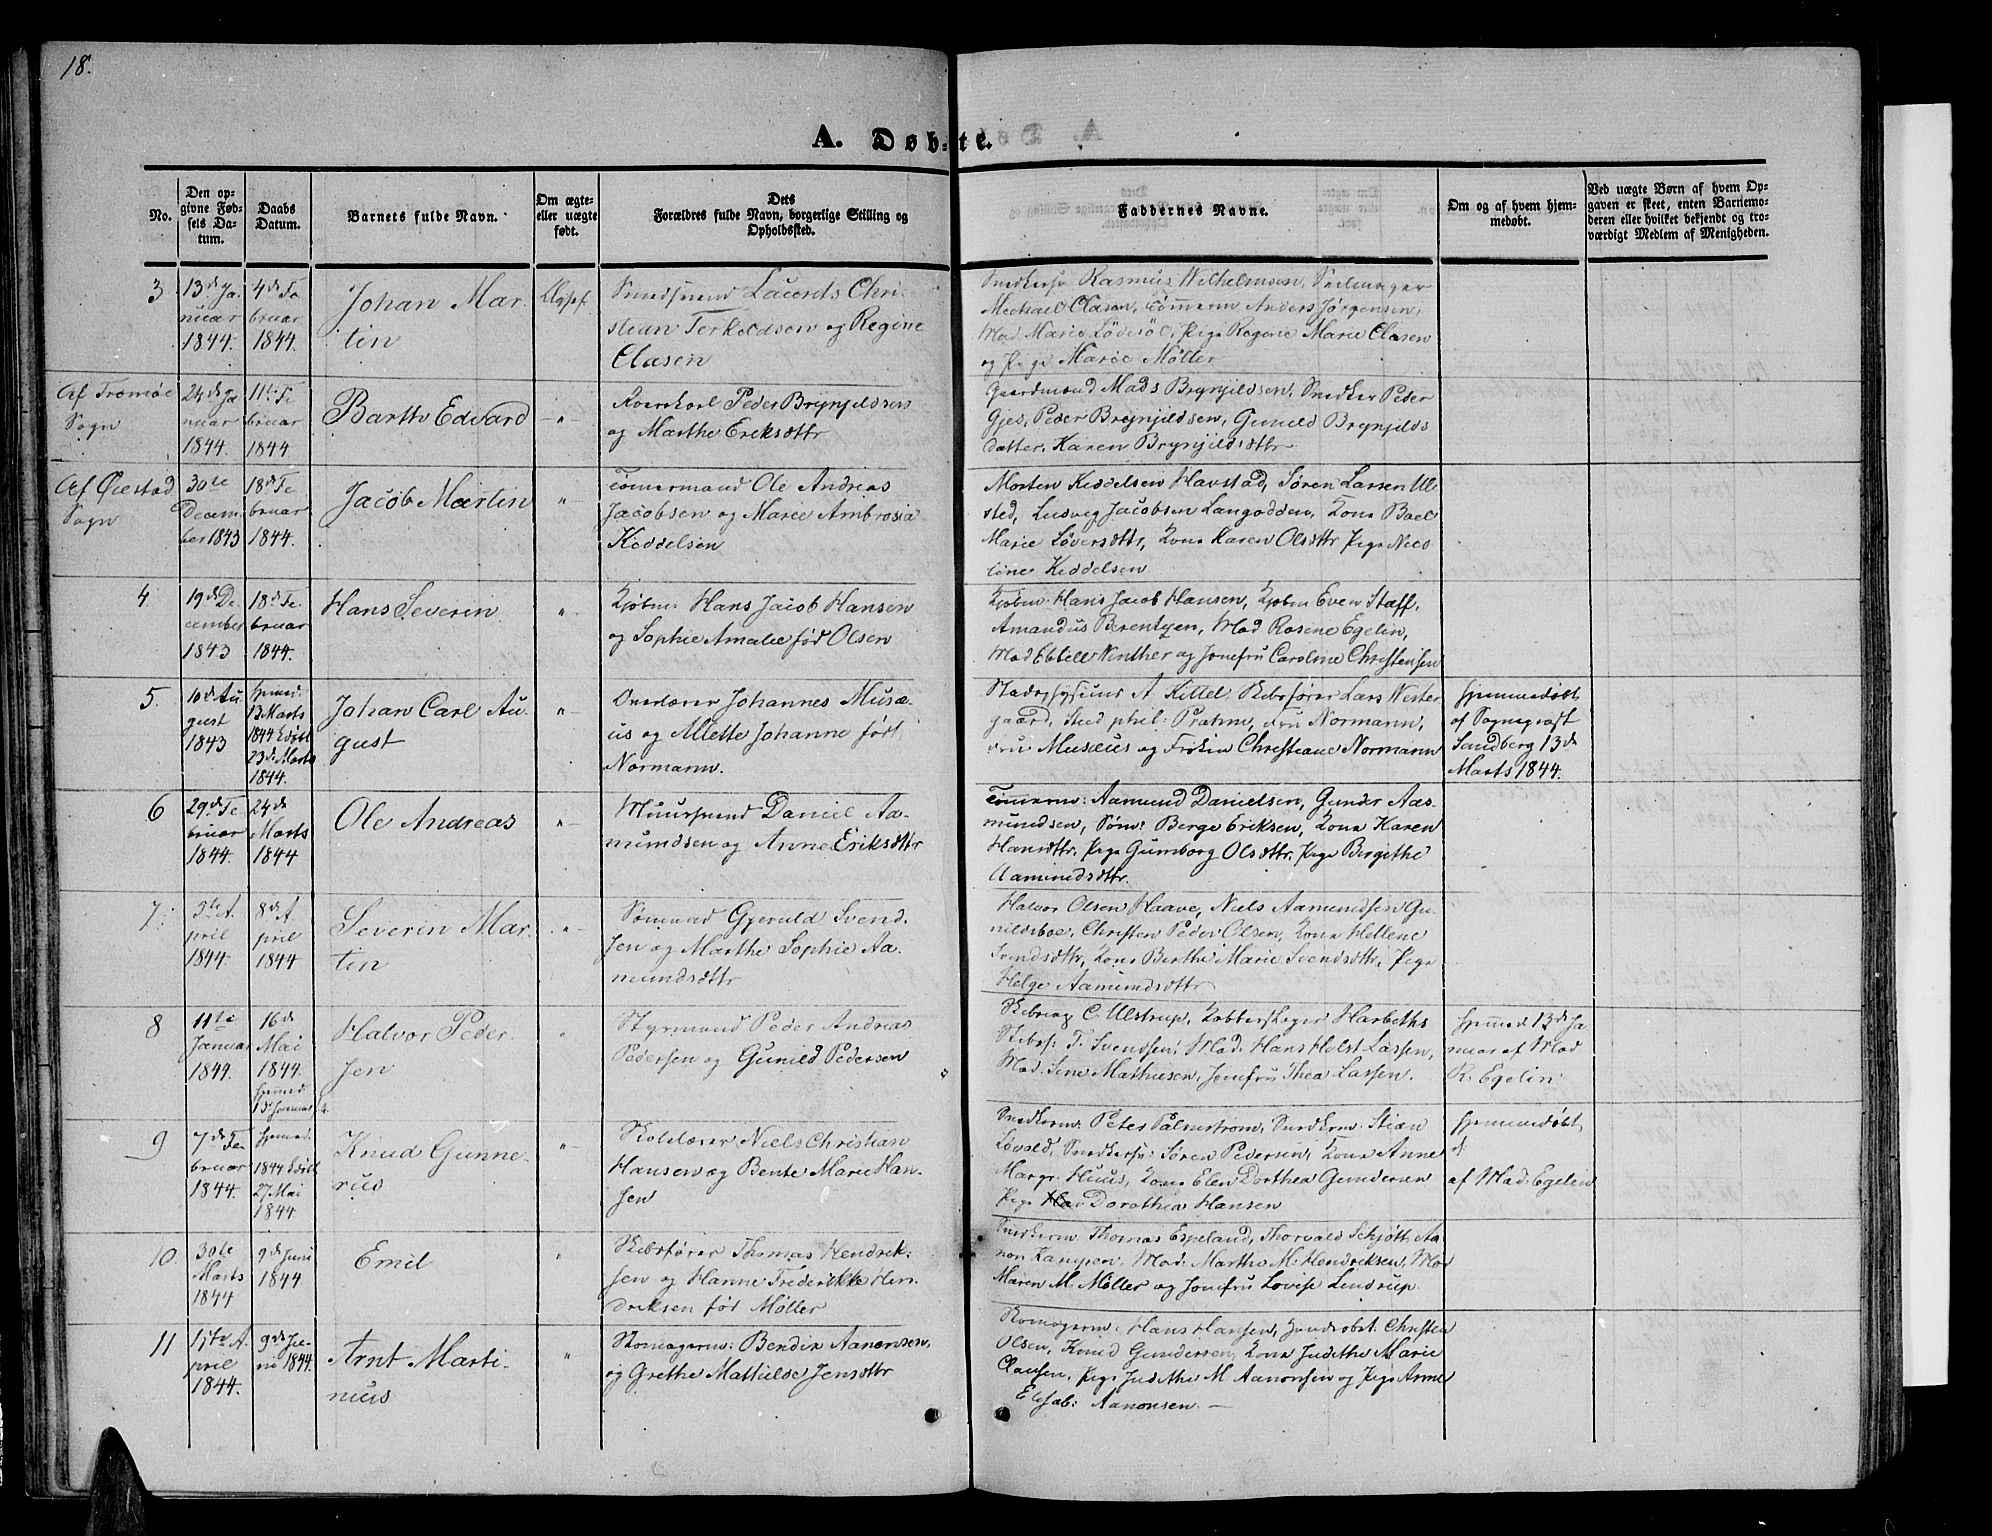 18.
A. Døb-te.
No.
Den op-
givne Fød-
sels Da-
tum.
Daabs
Datum.
Barnets fulde Navn.
Om ægte-
eller uægte
født.
Dets
Forældres fulde Navn, borgerlige Stilling og
Opholdssted.
Faddernes Navne.
Om og af hvem hjem-
medøbt.
Ved uægte Børn af hvem Op-
gaven er skeet, enten Barnemo-
deren eller hvilket bekjendt og tro-
værdigt Medlem af Menigheden.
3
13de Ja
nuar
1844.
4de Fe
bruar
1844.
Johan Mar
tin
Smedsvend Laurits Chri
stian Terkeldsen og Regine
Clasen
Rasmus Wilhelmsen, Seilmager
Michael Clasen, Tømerm Anders Jørgensen,
Mad Marie Pige Regine Marie Clasen
og Pige Marie Møller
Af Tromøe
Sogn
24de Ja
nuar
1844.
11te Fe
bruar
1844
Barth Edvard
-"-
Peder Brynjildsen
og Marthe Eriksdttr
Gaardmand Mads Brynjildsen, Snedker Peder
Gjes, Peder Brynjildsen, Gunild Brynjilds
datter, Karen Brynjildsdttr
Af Øiestad
Sogn
30te
Decem
ber 1843
18de Fe
bruar
1844.
Jacob Martin
"
Tømermand Ole Andreas
Jacobsen og Marie Ambrosia
Kiddelsen
Morten Kiddelsen Havstad, Søren Larsen Ul
sted, Ludvig Jacobsen Langodden, Kone Boel
Marie Kone Karen Olsdttr Pige Nico
line Kiddelsen
4
19de De
cember
1843
18de Fe
bruar
1844.
Hans Severin
"
Kjøbm Hans Jacob Hansen
og Sophie Amalie født Olsen
Kjøbm. Hans Jacob Hansen, Kjøbm Even Staff,
Amandus Berentzen, Mad Rosine Egelin,
Mad Ebbell Winther og Jomfru Caroline Christensen
5.
10de Au
gust
1843
hjemmed.
13 Marts
1844
23de Marts
1844.
Johan Carl Au-
gust
"
Overlærer Johannes Musæ-
us og Alette Johanne født
Normann.
A Kittel Skibsfører Lars Wester
gaard, Stud phil: Prahm, Fru Normann,
Fru Musæus og Frøken Christiane Normann
hjemmedøbt
af Sogneprest
Sandberg 13de
Marts 1844.
6
29de Fe
bruar
1844.
24de
Marts
1844
Ole Andreas
"
Muursvend Daniel Aa-
mundsen og Anne Eriksdttr
Tømmerm: Aamund Danielsen, Gunder Aas-
mundsen, Søm: Berge Eriksen, Kone Karen
Hansdttr, Pige Gumborg Olsdttr, Pige Bergithe
Aamundsdttr.
7
5te A
pril
1844.
8de A
pril
1844
Severin Mar
tin
"
Sømand Gjeruld Svend-
sen og Marthe Sophie Aa-
mundsdttr
Halvor Olsen Haave, Niels Aamundsen Gu
nildsboe, Christen Peder Olsen, Kone Hellene
Svendsdttr, Kone Berthe Marie Svendsdttr, Pige
Helge Aamundsdttr
8
11te
Januar
1844.
16de
Mai
1844.
hjemmed
13 Januar
Halvor Peder
sen
"
Styrmand Peder Andreas
Pedersen og Gunild Pedersen
C. Ulstrup, Kobberslager Harbeths
Skibsf T. Svendsen, Mad. Hans Holst Lassen,
Mad: Sine Mathiesen, Jomfru Thea Lassen.
hjemmed 13de Ja
nuar af Mad
R. Egelin
9
7de Fe
bruar
1844.
hjemmed.
1844
27 Mai
1844
Knud Gunne-
rius
"
Skolelærer Niels Christian
Hansen og Bente Marie Han-
sen
Snedkerm: Peter Palmstrøm, Snedkerm. Stian
Løvold, Snedkersv: Søren Pedersen, Kone Anne
Margr. Huus, Kone Elen Dorthea Gundersen
Pige Dorothea Hansen
hjemmedøbt
af
af Mad. Egelin
10
30te
Marts
1844
9de Juni
1844
Emil
"
Skibsfører Thomas Hendrik-
sen og Hanne Frederikke Hen
driksen født Møller
Snedkerm Thomas Espeland, Thorvald Schjøtt, Aa
non Mad. Marthe M. Hendriksen, Mad
Maren M. Møller og Jomfru Lovise Lendrup.
11
17te A
pril
1844.
9de Ju-
ni 1844.
Arnt Marti-
nius
"
Skomagerm: Bendix Aanonsen,
og Grethe Mathilde Jensdttr
Skomagerm. Hans Hansen, Christen
Olsen, Knud Gundersen, Kone Judithe Marie
Clausen, Pige Judithe M Aanonsen og Pige Anne
Elisab: Aanonsen. —